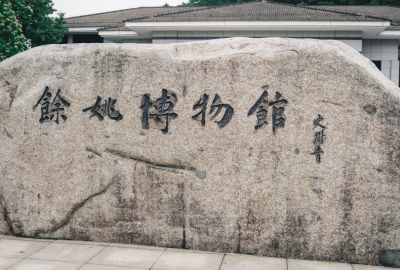 餘姚博物館